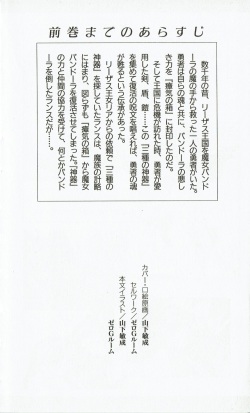 前巻までのあらすじ
数千年の昔、リーザス王国を魔女パンド
ーラの魔の手から救った一人の勇者がいた。
勇者は自らの魂と共に、パンドーラの悪し
き力を『瘴気の箱』に封印したのだ。
そして王国に危機が訪れた時、勇者が愛
用した剣、盾、鎧……この『三種の神器』
を集めて復活の呪文を唱えれば、勇者の魂
が甦るという伝承があった。
リーザス王女リアからの依頼で『三種の
神器』を探していたランスは、魔族の計略
にはまり、図らずも『瘴気の箱』から魔女
パンドーラを復活させてしまった。『神器』
の力と仲間の協力を受けて、何とかパンド
ーラを倒したランスだが……。
カバー・口絵原画／山下敏成
セルワーク／ゼロGルーム
本文イラスト／山下敏成
ゼロGルーム